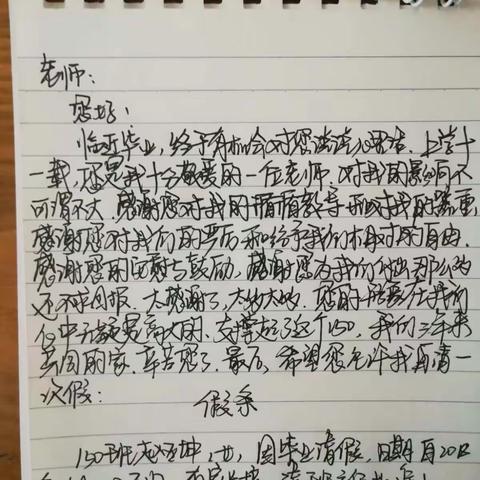 老师:
您好!
临近毕业,终于有机会对您谈谈心里话。上学十
一载,您是我十分敬爱的一位老师,对我的影响不
可谓不大。感谢您对我的谆谆教导和对我的器重,
感谢您对我们的严厉和给予我们相对的自由。
感谢您的包容与鼓励。感谢您为我们付出那么多
还不求回报。太感谢了,太感谢。您的形象在我们
心中无疑是高大的,支撑起了这个150,我们三年来
共同的家,辛苦您了。最后,希望您允许我再请一
次假:
假条
150班 坤,女,因毕业请假,日期自20日